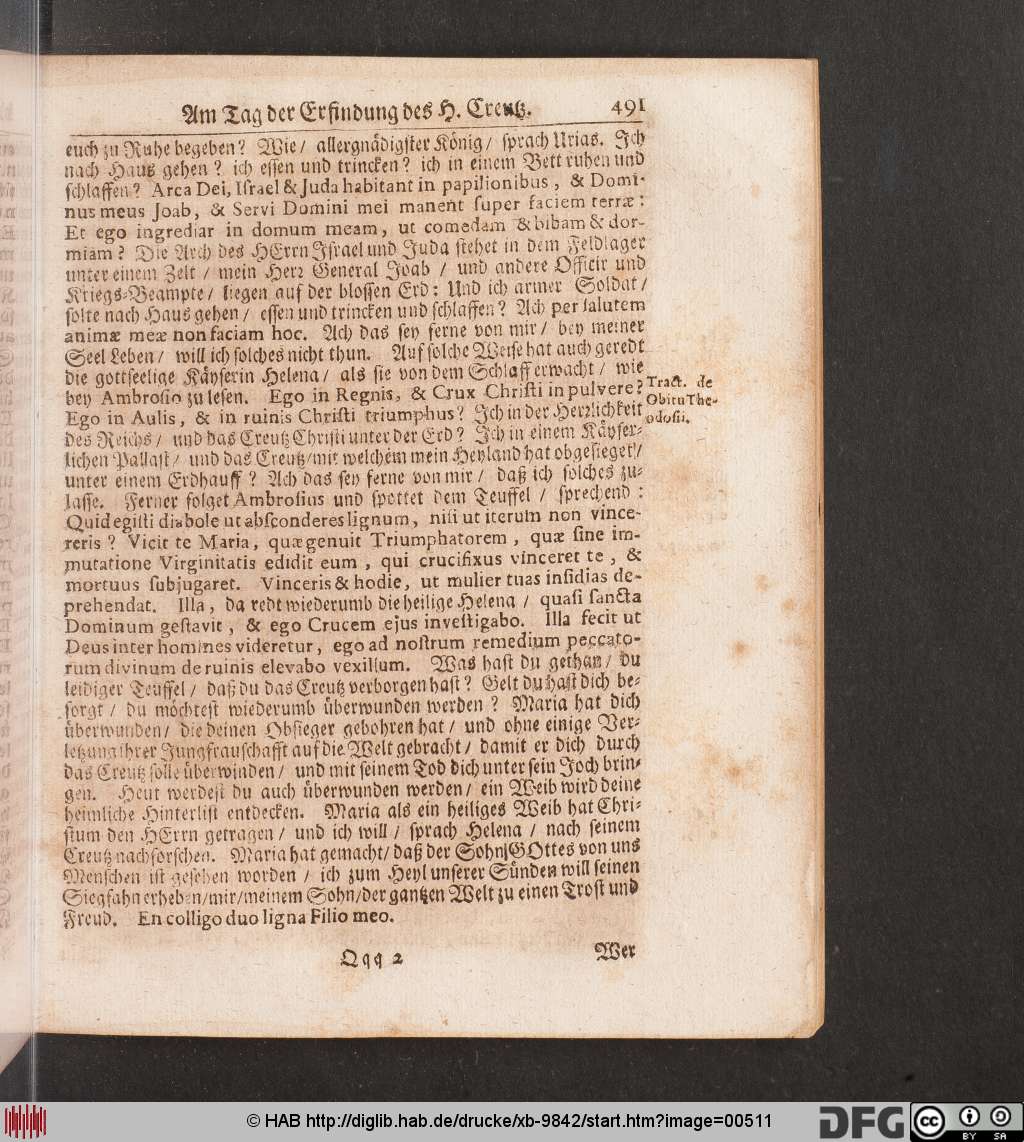 Am Tag der Erfindung des H. Creutz. 491
euch zu Ruhe begeben? Wie/ allergnädigster König/ sprach Urias. Ich
nach Haus gehen? ich essen und trincken? ich in einem Bett ruhen und
schlaffen? Arca Dei, Israel & Juda habitant in papilionibus, & Domi-
nus meus Joab, & Servi Domini mei manent super faciem terræ:
Et ego ingrediar in domum meam, ut comedam & bibam & dor-
miam? Die Arch des HErrn Israel und Juda stehet in dem Feldlager
unter einem Zelt/ mein Herr General Joab/ und andere Officir und
Kriegs-Beampte/ liegen auf der blossen Erd: Und ich armer Soldat/
solte nach Haus gehen/ essen und trincken und schlaffen? Ach per salutem
animæ meæ non faciam hoc. Ach das sey ferne von mir/ bey meiner
Seel Leben/ will ich solches nicht thun. Auf solche Weise hat auch geredt
die gottseelige Käyserin Helena/ als sie von dem Schlaff erwacht/ wie
bey Ambrosio zu lesen. Ego in Regnis, & Crux Christi in pulvere?
Tract. de
Obitu The-
odosii.
Ego in Aulis, & in ruinis Christi triumphus? Ich in der Herrlichkeit
des Reichs/ und das Creutz Christi unter der Erd? Ich in einem Käyser-
lichen Pallast/ und das Creutz/ mit welchem mein Heyland hat obgesieget/
unter einem Erdhauff? Ach das sey ferne von mir/ daß ich solches zu-
lasse. Ferner folget Ambrosius und spottet dem Teuffel/ sprechend:
Quid egisti diabole ut absconderes lignum, nisi ut iterum non vince-
reris? Vicit te Maria, quæ genuit Triumphatorem, quæ sine im-
mutatione Virginitatis edidit eum, qui crucifixus vinceret te, &
mortuus subjugaret. Vinceris & hodie, ut mulier tuas insidias de-
prehendat. Illa, da redt wiederumb die heilige Helena/ quasi sancta
Dominum gestavit, & ego Crucem ejus investigabo. Illa fecit ut
Deus inter homines videretur, ego ad nostrum remedium peccato-
rum divinum de ruinis elevabo vexillum. Was hast du gethan/ du
leidiger Teuffel/ daß du das Creutz verborgen hast? Gelt du hast dich be-
sorgt/ du möchtest wiederumb überwunden werden? Maria hat dich
überwunden/ die deinen Obsieger gebohren hat/ und ohne einige Ver-
letzung ihrer Jungfrauschafft auf die Welt gebracht/ damit er dich durch
das Creutz solle überwinden/ und mit seinem Tod dich unter sein Joch brin-
gen. Heut werdest du auch überwunden werden/ ein Weib wird deine
heimliche Hinterlist entdecken. Maria als ein heiliges Weib hat Chri-
stum den HErrn getragen/ und ich will/ sprach Helena/ nach seinem
Creutz nachforschen. Maria hat gemacht/ daß der Sohn GOttes von uns
Menschen ist gesehen worden/ ich zum Heyl unserer Sünden will seinen
Siegfahn erheben/ mir/ meinem Sohn/ der gantzen Welt zu einen Trost und
Freud. En colligo duo ligna Filio meo.
Qqq 2 Wer
© HAB http://diglib.hab.de/drucke/xb-9842/start.htm?image=00511
DFG cc BY SA